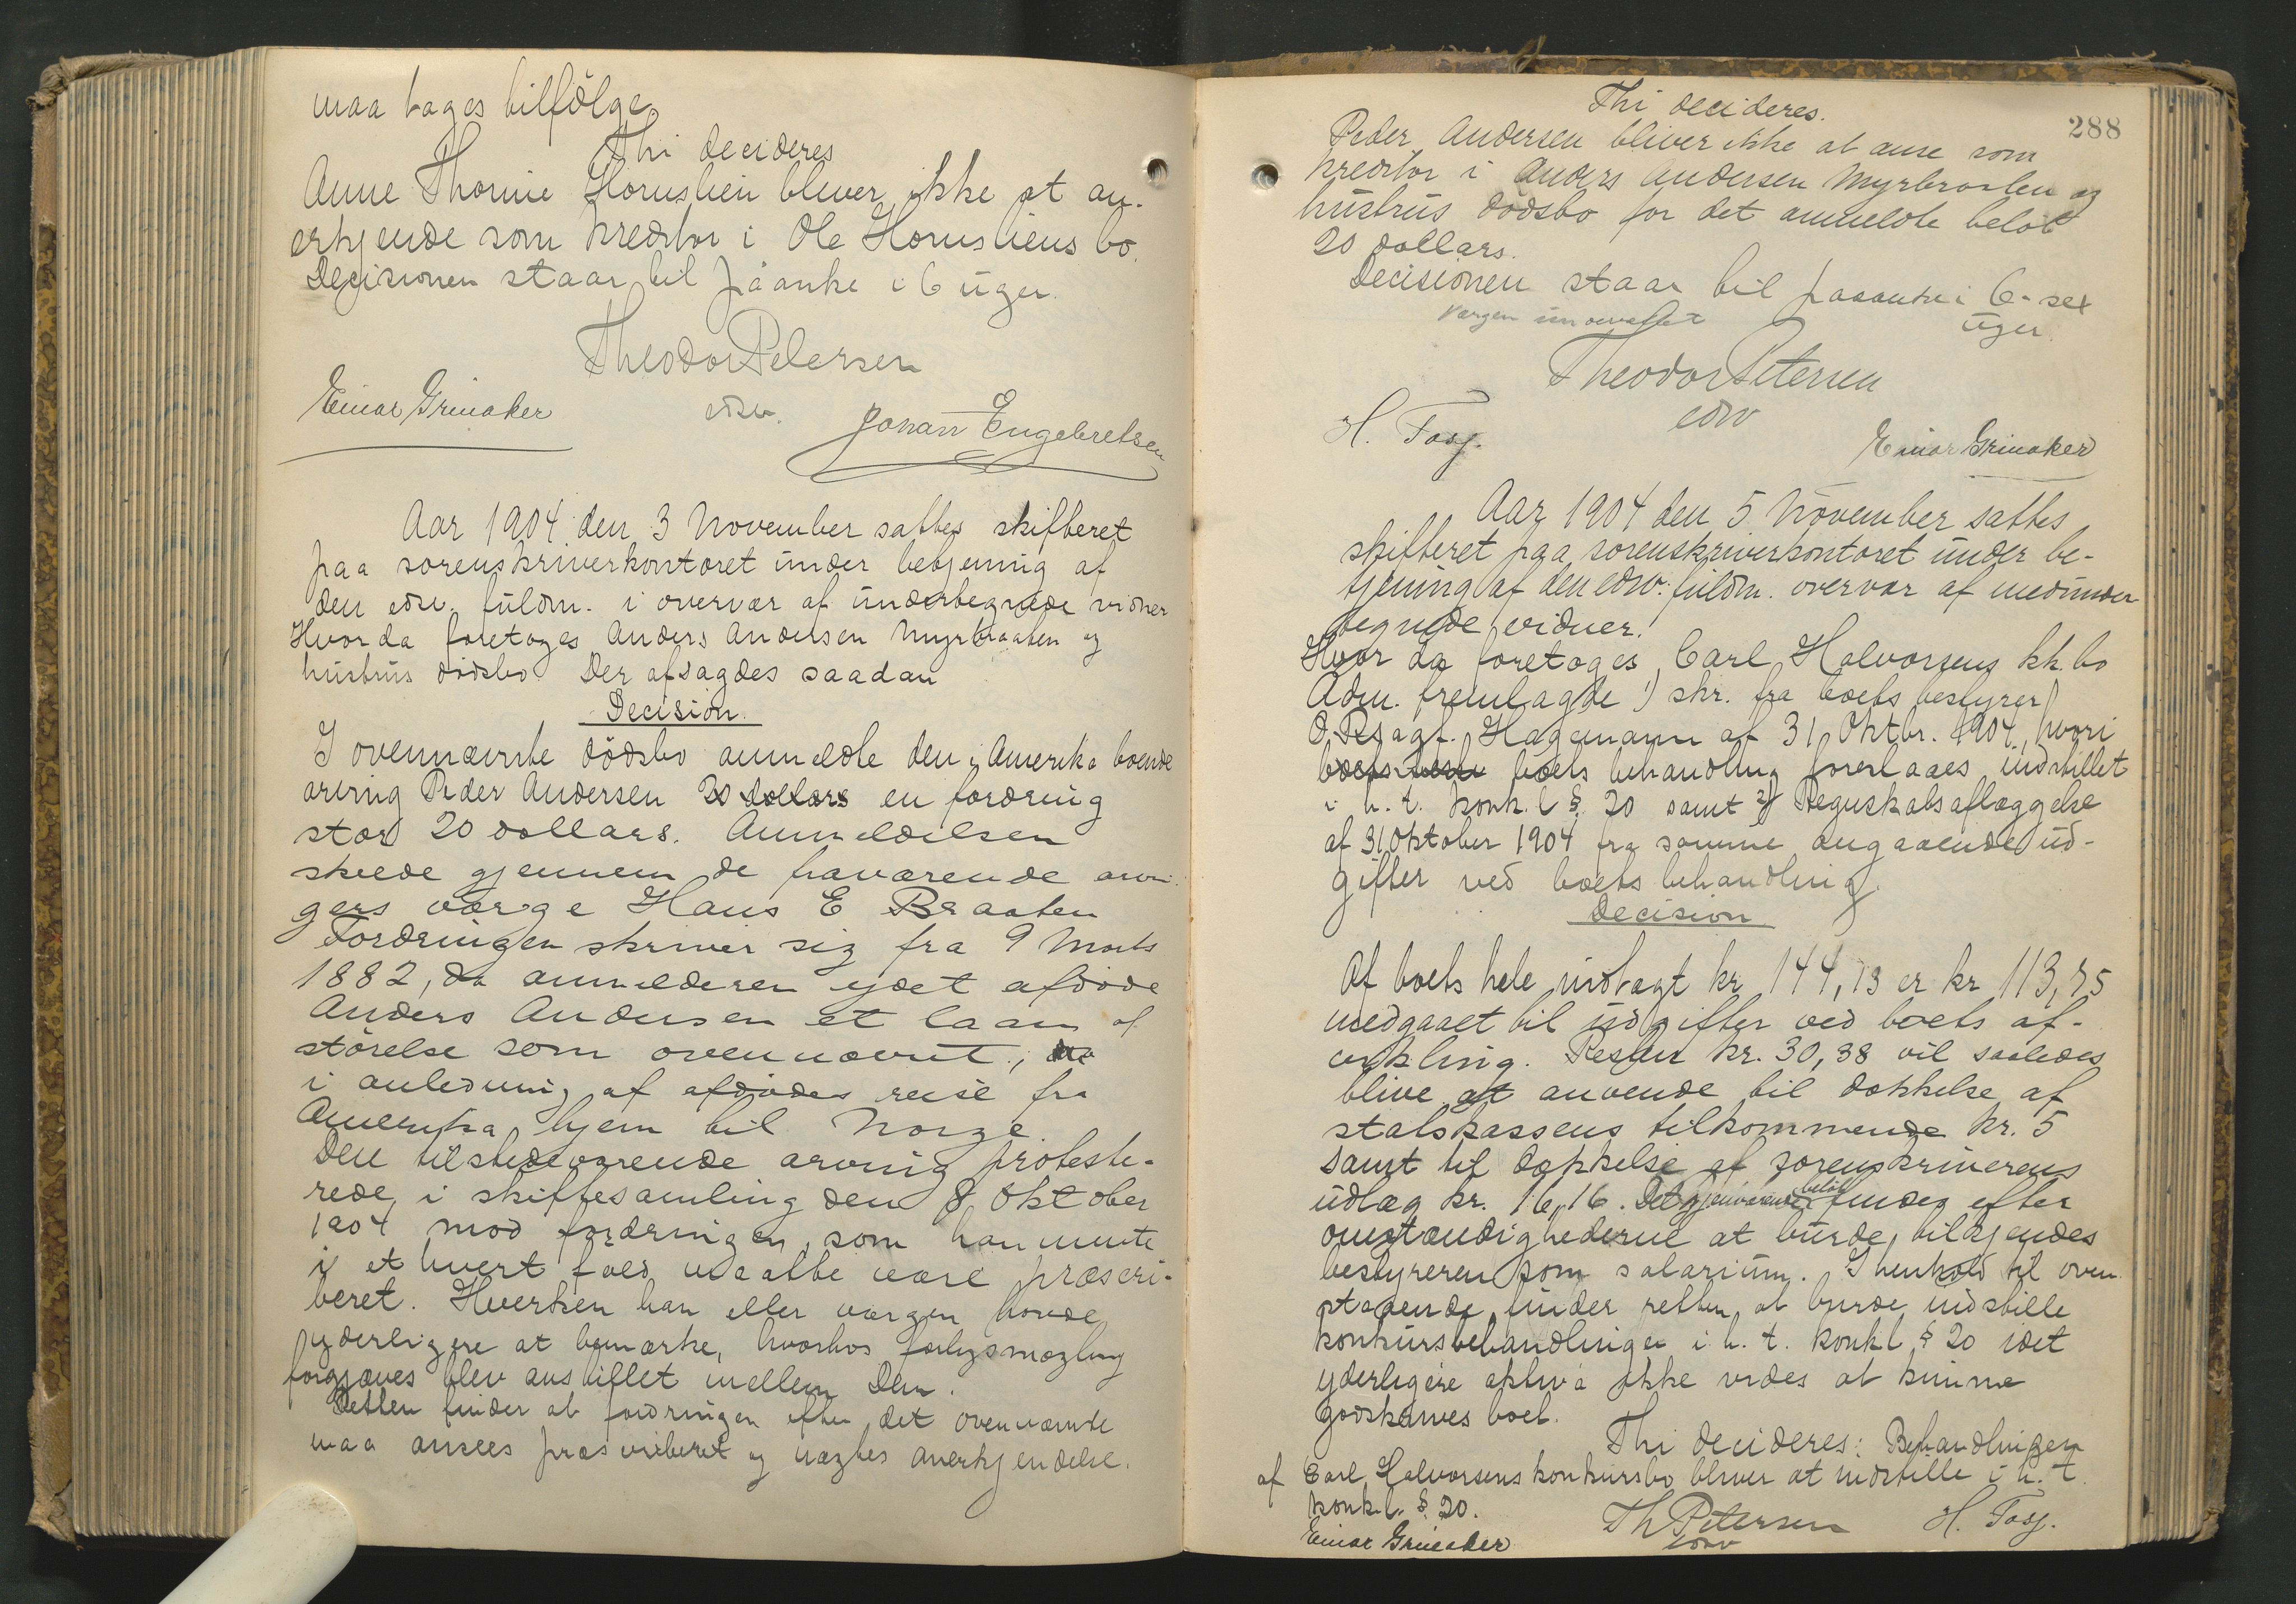 maa tages tilfölge.
Thi decideres
Anne Thonie Hornslien bliver ikke at an-
erkjende som kreditor i Ole Hornsliens bo.
Decisionen staar til paanke i 6 uger.
Theodor Petersen
edsv.
Einar Grinaker
Johan Engebretsen
Aar 1904 den 3 November sattes skifteret
paa sorenskriverkontoret under betjening af
den edsv. fuldm. i overvær af undertegnede vidner
Hvor da foretoges Anders Andersen Myrbraaten og
hustrus dödsbo. Der afsagdes saadan
Decision.
I ovennævnte dödsbo anmeldte den i Amerika boende
arving Peder Andersen 20 dollars en fordring
stor 20 dollars. Anmeldelsen
skede gjennem de fraværende arvin-
gers værge Hans E Braaten
Fordringen skriver sig fra 9 Marts
1882, da anmelderen ydet afdöde
Anders Andersen et laan af
störelse som ovennævnt,
i anledning af afdödes reise fra
Amerika hjem til Norge.
Den tilstedeværende arving proteste-
rede i skiftesamling den 8 Oktober
1904 mod fordringen, som han mente
i et hvert fald maatte være præscri-
beret. Hverken han eller værgen havde
yderligere at bemærke, hvorhos forligsmægling
forgjæves blev anstillet mellem dem.
Retten finder at fordringen efter det ovennævnte
maa ansees præscriberet og nægtes anerkjendelse.
288
Thi decideres.
Peder Andersen bliver ikke at anse som
kreditor i Anders Andersen Myrbraaten og
hustrus dödsbo for det anmeldte belöb
20 dollars.
Decisionen staar til paaanke i 6 - sex
uger.
Værgen
Theodor Petersen
edsv
H. Fosy.
Einar Grinaker
Aar 1904 den 5 November sattes
skifteret paa sorenskriverkontoret under be-
tjening af den edsv. fuldm. overvær af medunder
tegnede vidner.
Hvor da foretoges Carl Halvorsens kk. bo
Adm. fremlagde 1) skr. fra boets bestyrer
O.R.sagf. Hagemann af 31 Oktbr. 1904, hvori
boets best boets behandling foreslaaes indstillet
i h. t. konk. l § 20 samt 2) Regnskabsaflæggelse
af 31 Oktober 1904 fra samme angaaende ud-
gifter ved boets behandling.
Decision
Af boets hele indtægt kr 144,13 er kr 113,75
medgaaet til udgifter ved boets af-
vikling. Resten kr. 30,38 vil saaledes
blive at anvende til dækkelse af
statskassens tilkommende kr. 5
samt til dækkelse af sorenskriverens
udlæg kr. 16,16. Det gjenværende belöb findes efter
omstændighederne at burde tilkjendes
bestyreren som salarium. I henhold til oven
staaende finder retten at burde indstille
konkursbehandlingen i h. t. konkl § 20 idet
yderligere aktiva ikke vides at kunne
godskrives boet.
Thi decideres: Behandlingen
af Carl Halvorsens konkursbo bliver at indstille i h. t.
konkl. § 20.
Th Petersen
edsv
H. Fosy.
Einar Grinaker